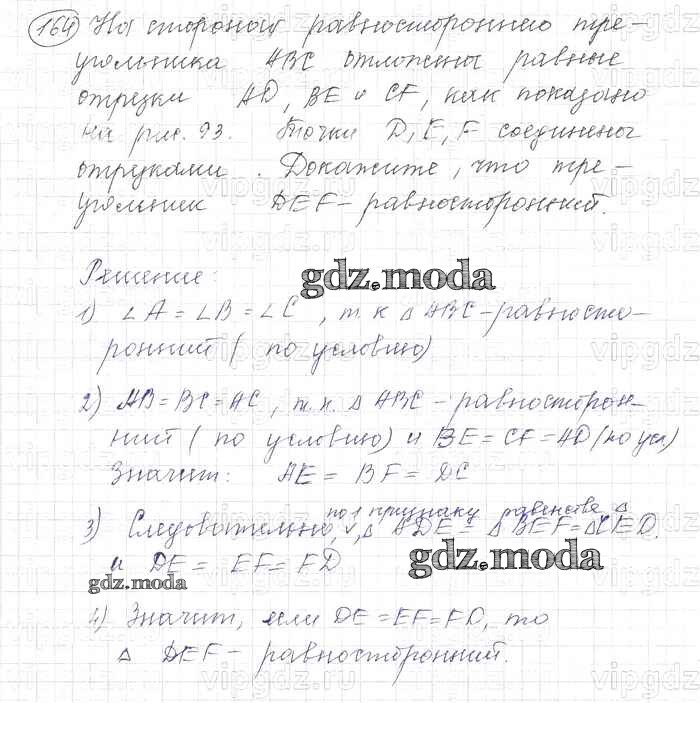 164 На сторонах равностороннего тре-
угольника ABC отложены равные
отрезки AD, BE и CF, как показано
на рис. 93. Точки D, E, F соединены
отрезками. Докажите, что тре-
угольник DEF – равносторонний.
Решение:
gdz.moda
1) ∠A = ∠B = ∠C, т.к △ABC – равносто-
ронний (по условию)
2) AB = BC = AC, т.к. △ABC – равносторон-
ний (по условию) и BE = CF = AD (по усл)
Значит: AE = BF = DC
по 1 признаку равенства △
3) Следовательно, △ADE = △BEF = △CED.
и DE = EF = FD
gdz.moda
gdz.moda
4) Значит, если DE = EF = FD, то
△ DEF – равносторонний.